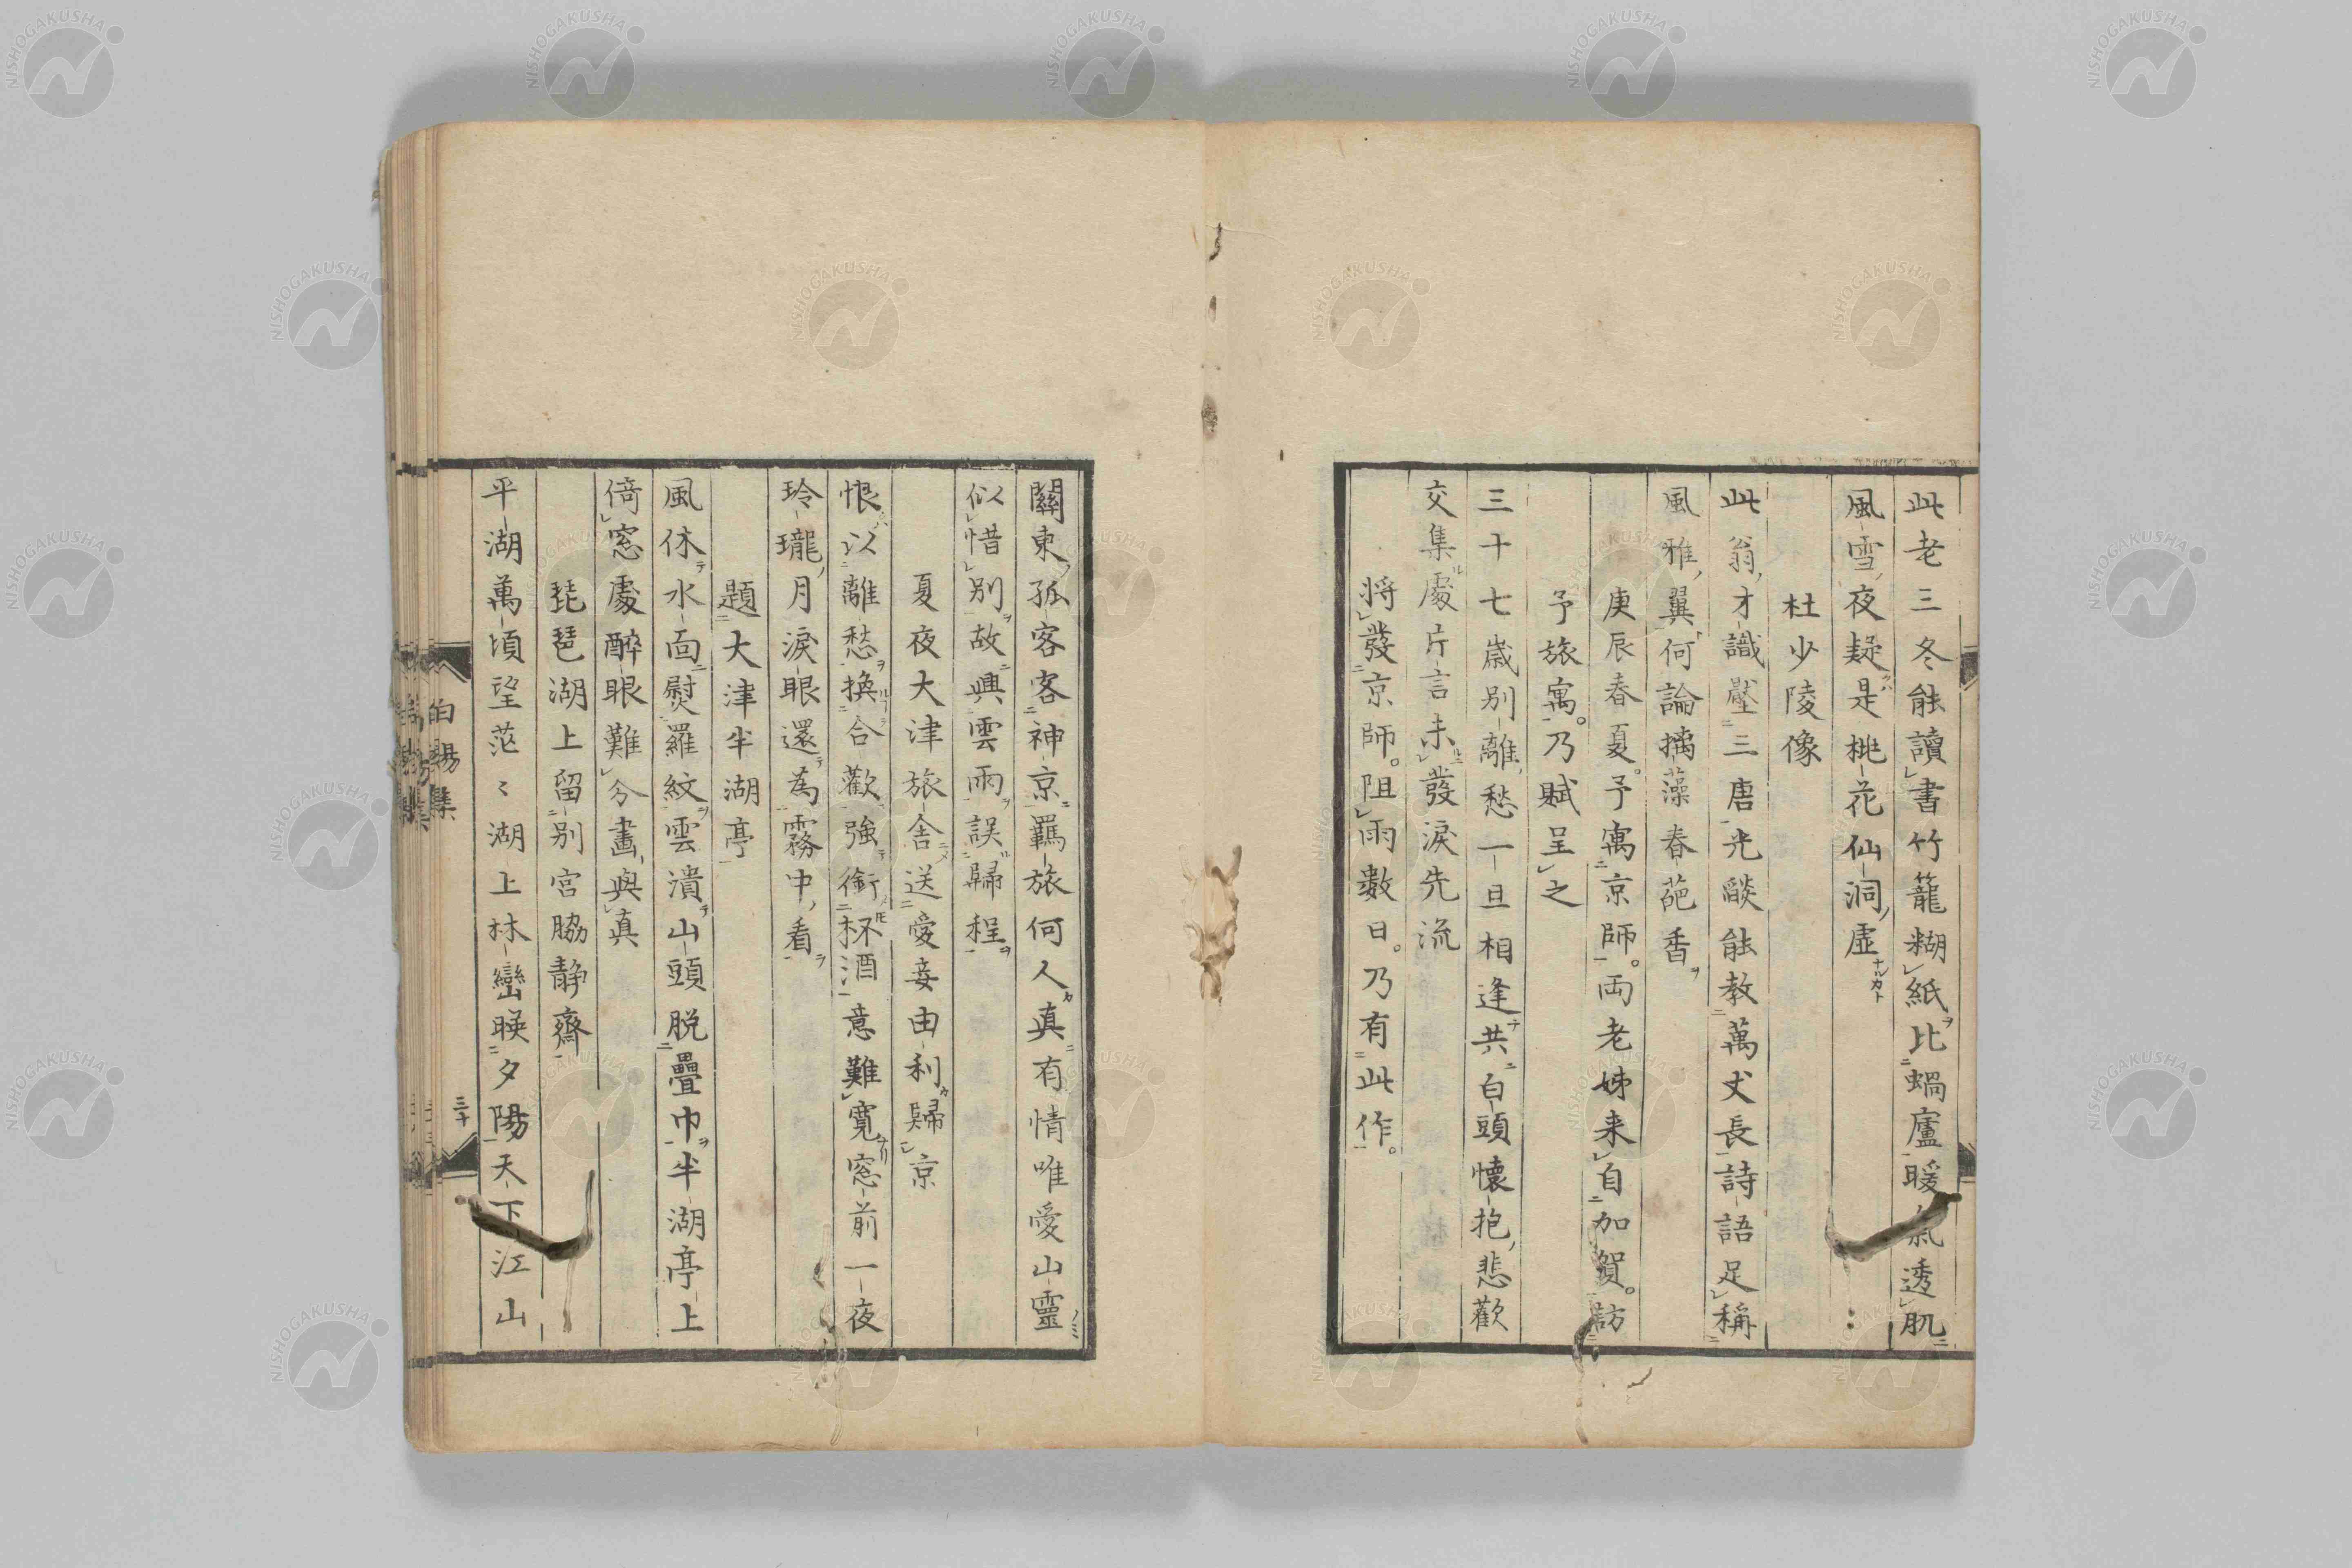 此老三冬能讀書竹籠糊紙比蝸廬暖氣透肌
風雪夜疑是桃花仙洞虛
杜少陵像
此翁才識壓三唐光燄能教萬丈長詩語足稱
風雅翼何論摛藻春葩香
庚辰春夏。予寓京師。両老姊来自加賀。訪
予旅寓。乃賦呈之
三十七歳別離愁一旦相逢共白頭懐抱悲歡
交集處片言未發淚先流
将發京師。阻雨數日。乃有此作。
關東孤客客神京羈旅何人真有情唯愛山靈
似惜別故興雲雨誤歸程
夏夜大津旅舎送愛妾由利歸京
恨以離愁換合歡強銜杯酒意難寬窓前一夜
玲瓏月淚眼還為霧中看
題大津半湖亭
風休水面熨羅紋雲潰山頭脱疊巾半湖亭上
倚窓處醉眼難分畫與真
琵琶湖上留別宮脇静齋
平湖萬頃望茫〻湖上林巒暎夕陽天下江山
三十
NISHOGAKUSHA